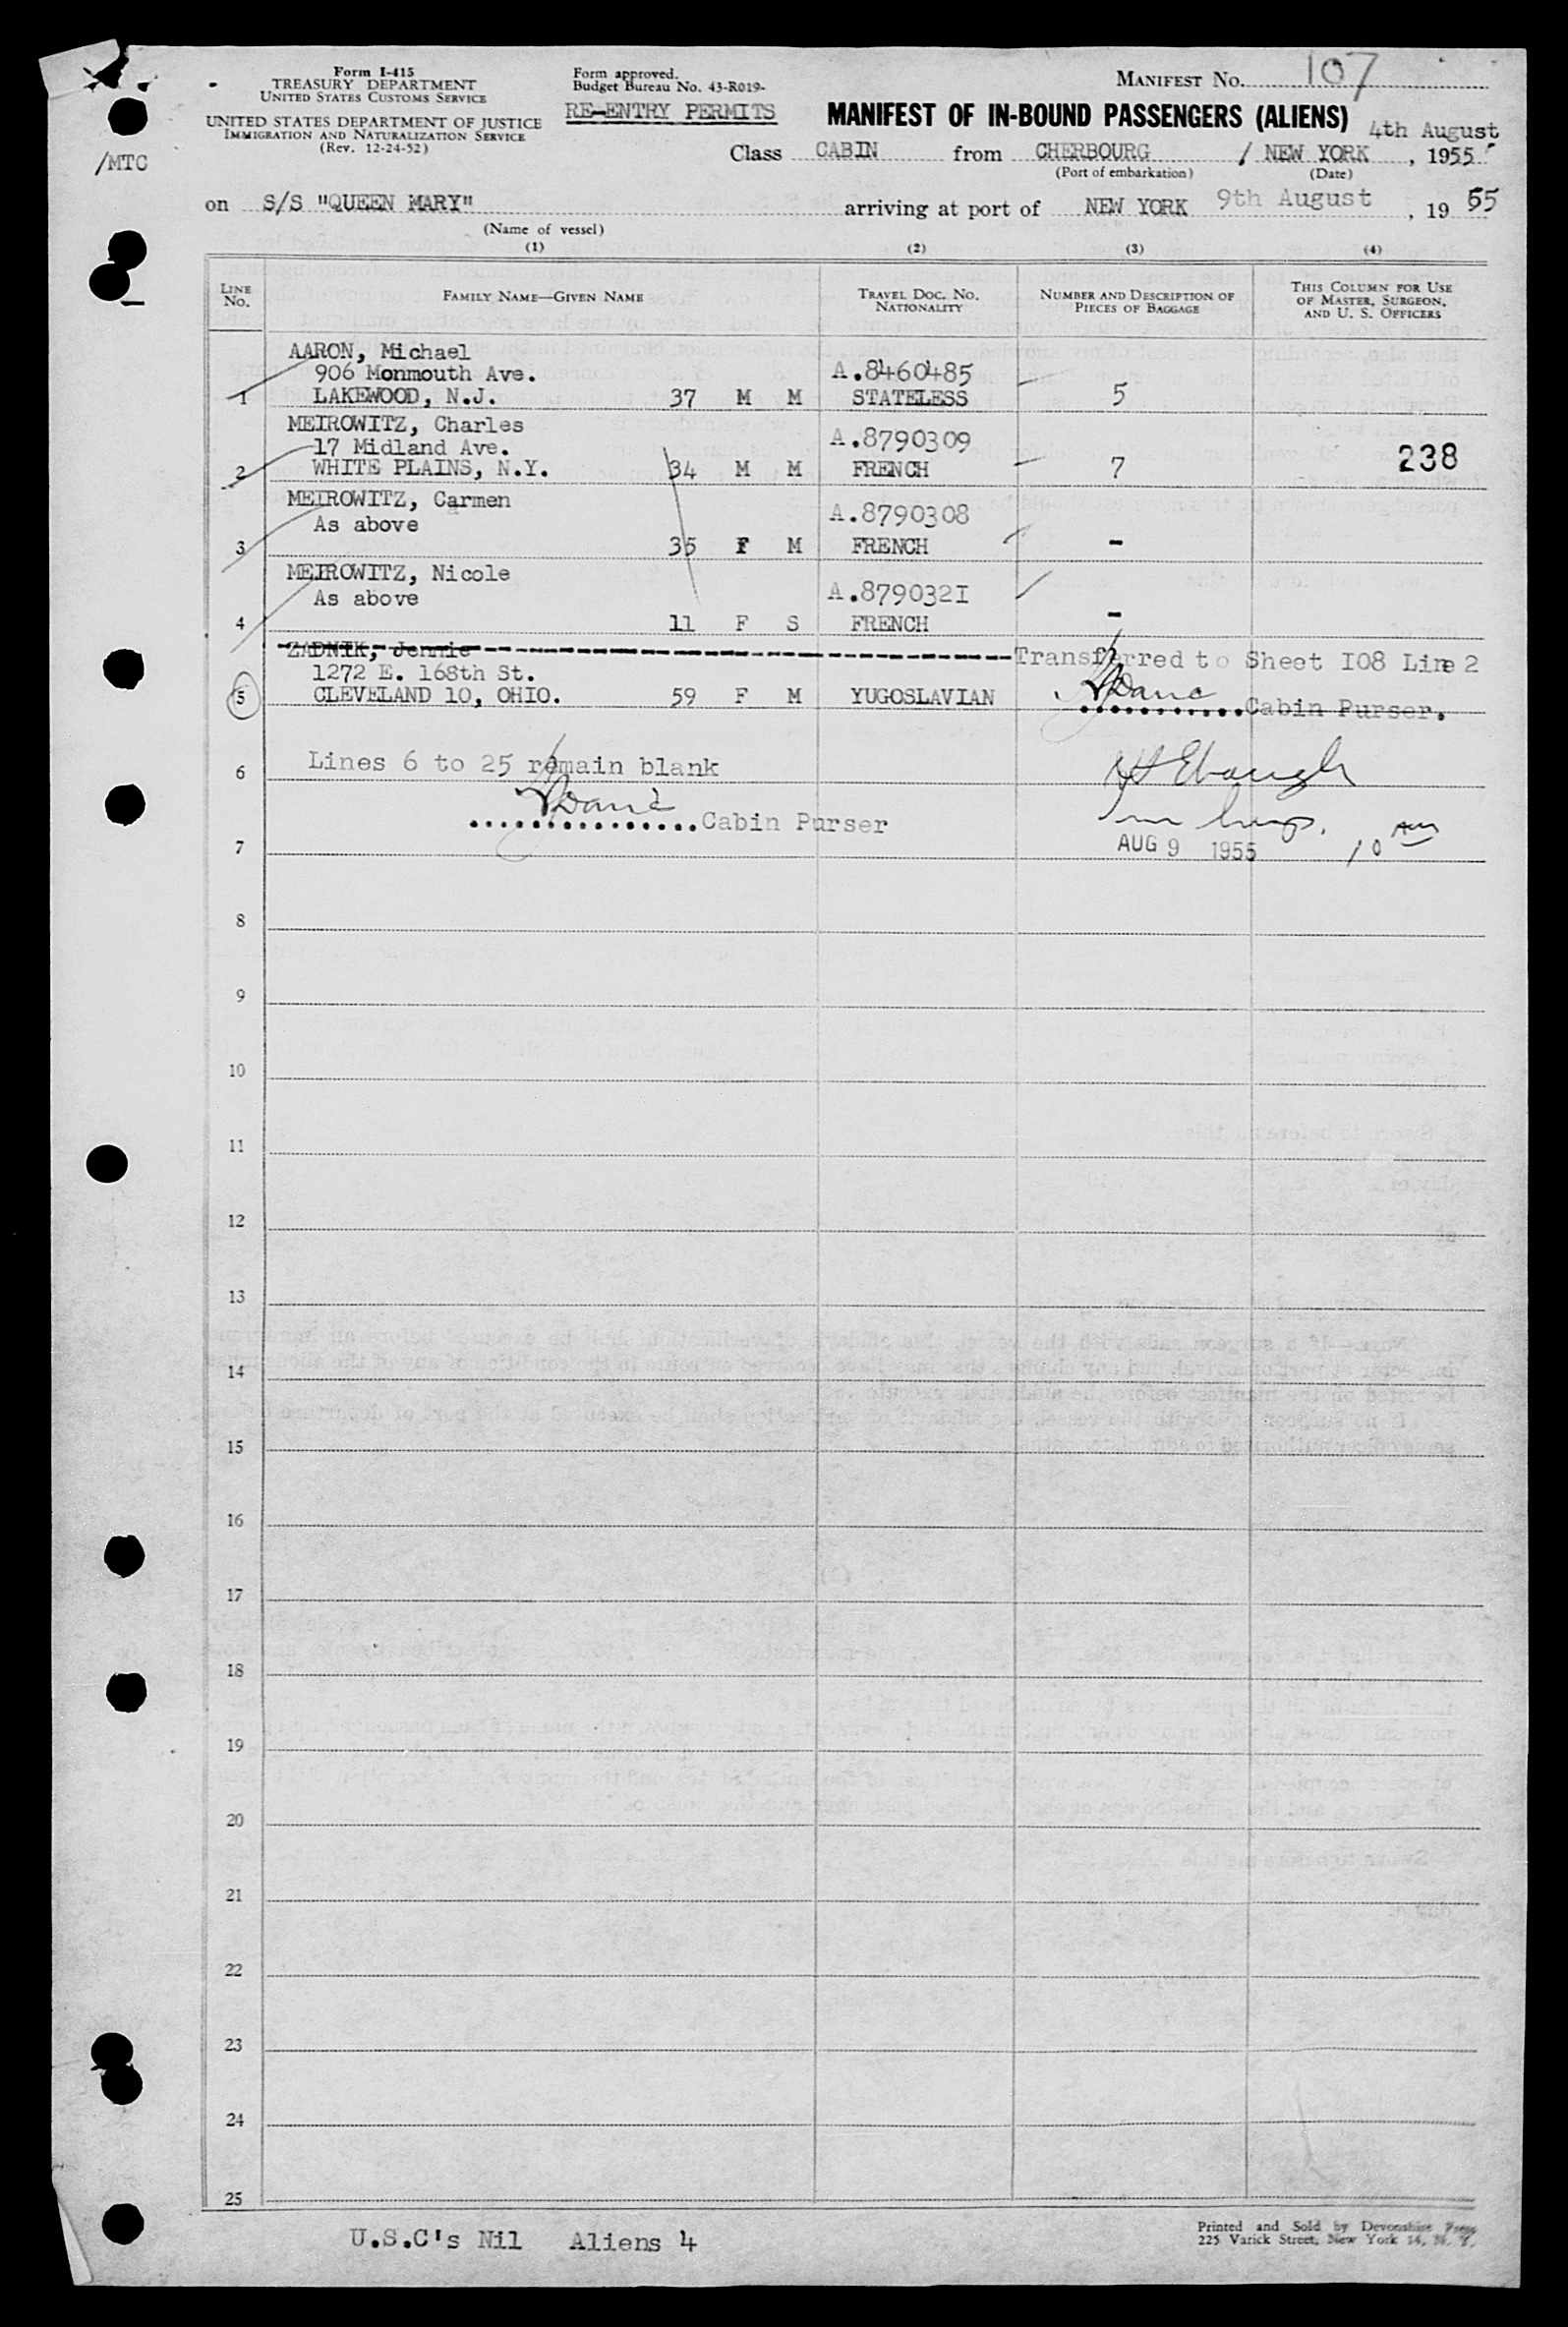 Form I-415
TREASURY DEPARTMENT
UNITED STATES CUSTOMS SERVICE
UNITED STATES DEPARTMENT OF JUSTICE
IMMIGRATION AND NATURALIZATION SERVICE
(Rev. 12-24-52)
/MTC
Form approved.
Budget Bureau No. 43-R019-
RE-ENTRY PERMITS
MANIFEST No. 107
MANIFEST OF IN-BOUND PASSENGERS (ALIENS)
4th August
Class CABIN from CHERBOURG / NEW YORK, 1955
(Port of embarkation) (Date)
on S/S "QUEEN MARY" arriving at port of NEW YORK 9th August, 19 55
(Name of vessel)
(1) (2) (3) (4)
LINE No. FAMILY NAME—GIVEN NAME TRAVEL DOC. NO. NATIONALITY NUMBER AND DESCRIPTION OF PIECES OF BAGGAGE THIS COLUMN FOR USE OF MASTER, SURGEON, AND U. S. OFFICERS
AARON, Michael
906 Monmouth Ave. A.8460485
1 LAKEWOOD, N.J. 37 M M STATELESS 5
MEIROWITZ, Charles
17 Midland Ave. A.8790309
2 WHITE PLAINS, N.Y. 34 M M FRENCH 7 238
MEIROWITZ, Carmen
As above A.8790308
3 35 F M FRENCH -
MEIROWITZ, Nicole
As above A.879032I
4 11 F S FRENCH -
ZADNIK, Jennie Transferred to Sheet I08 Line 2
1272 E. 168th St.
5 CLEVELAND 10, OHIO. 59 F M YUGOSLAVIAN Cabin Purser.
6 Lines 6 to 25 remain blank
Cabin Purser
7 AUG 9 1955 10 AM
8
9
10
11
12
13
14
15
16
17
18
19
20
21
22
23
24
25
U.S.C's Nil Aliens 4
Printed and Sold by Devonshire Press
225 Varick Street, New York 14, N. Y.